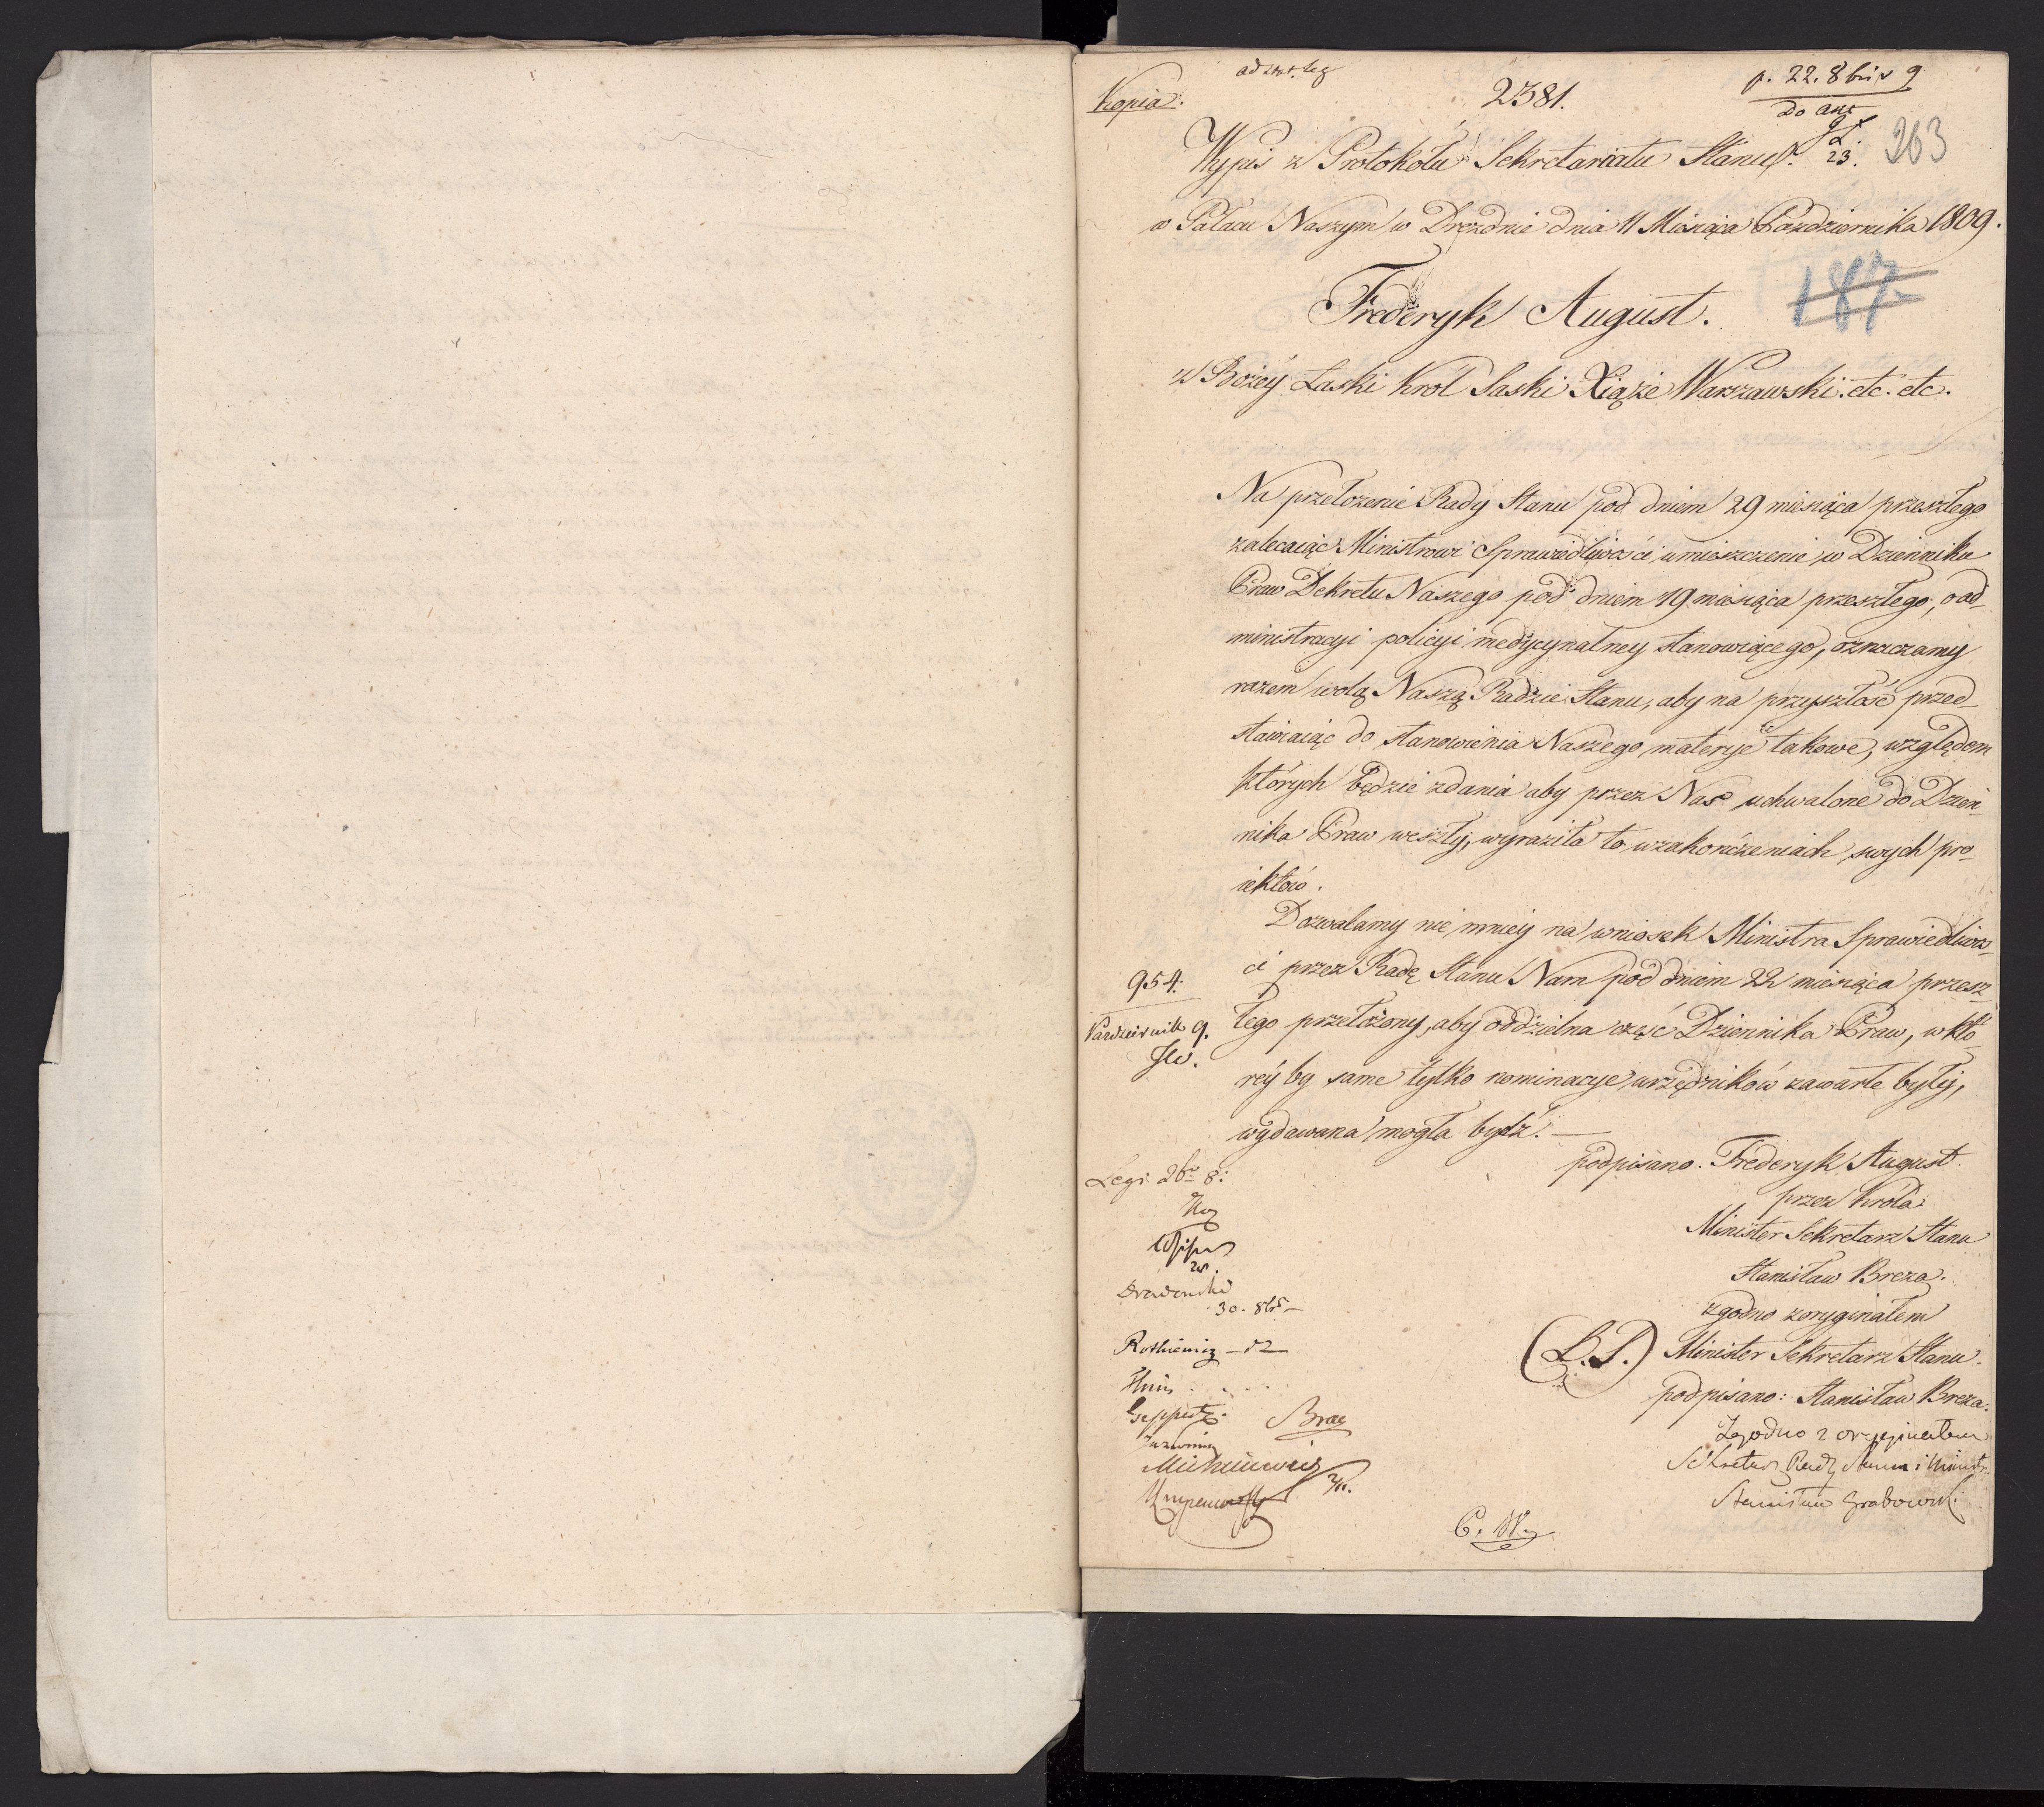 Kopia.
2381.
p. 22. 8bris 9
263
Wypis z Protokołu Sekretariatu Stanu.
23.
w Pałacu Naszym w Dreźnie dnia 11 Miesiąca Października 1809.
187
Frederyk August.
z Bożéy Łaski Król Saski Xiąże Warszawski. etc. etc.
Na przełożenie Rady Stanu pod dniem 29 miesiąca przeszłego
zalecaiąc Ministrowi Sprawiedliwości umieszczenie w Dzienniku
Praw Dekretu Naszego pod dniem 19 miesiąca przeszłego, o ad-
ministracyi policyi medycynalney stanowiącego, oznaczamy
razem wolą Naszą Radzie Stanu, aby na przyszłość przed-
stawiaiąc do stanowienia Naszego materye takowe, względem
których będzie zdania aby przez Nas uchwalone do Dzien-
nika Praw weszły, wyraziła to w zakończeniach swych pro-
iektów.
Dozwalamy nie mniey na wniosek Ministra Sprawiedliwoś-
ci przez Radę Stanu Nam pod dniem 22 miesiąca przesz-
łego przełożony, aby oddzielna część Dziennika Praw, w któ-
réy by same tylko nominacye urzędników zawarte były,
wydawana mogła bydź. —
954.
Październik 9.
podpisano. Frederyk August
przez Króla
Minister Sekretarz Stanu
Stanisław Breza.
zgodno z oryginałem
(L.S.) Minister Sekretarz Stanu.
podpisano: Stanisław Breza.
Zgodno z oryginałem
Sekretarz Rady Stanu i Ministr.
Stanisław Grabowski
Legi 2br 8:
30. 8br —